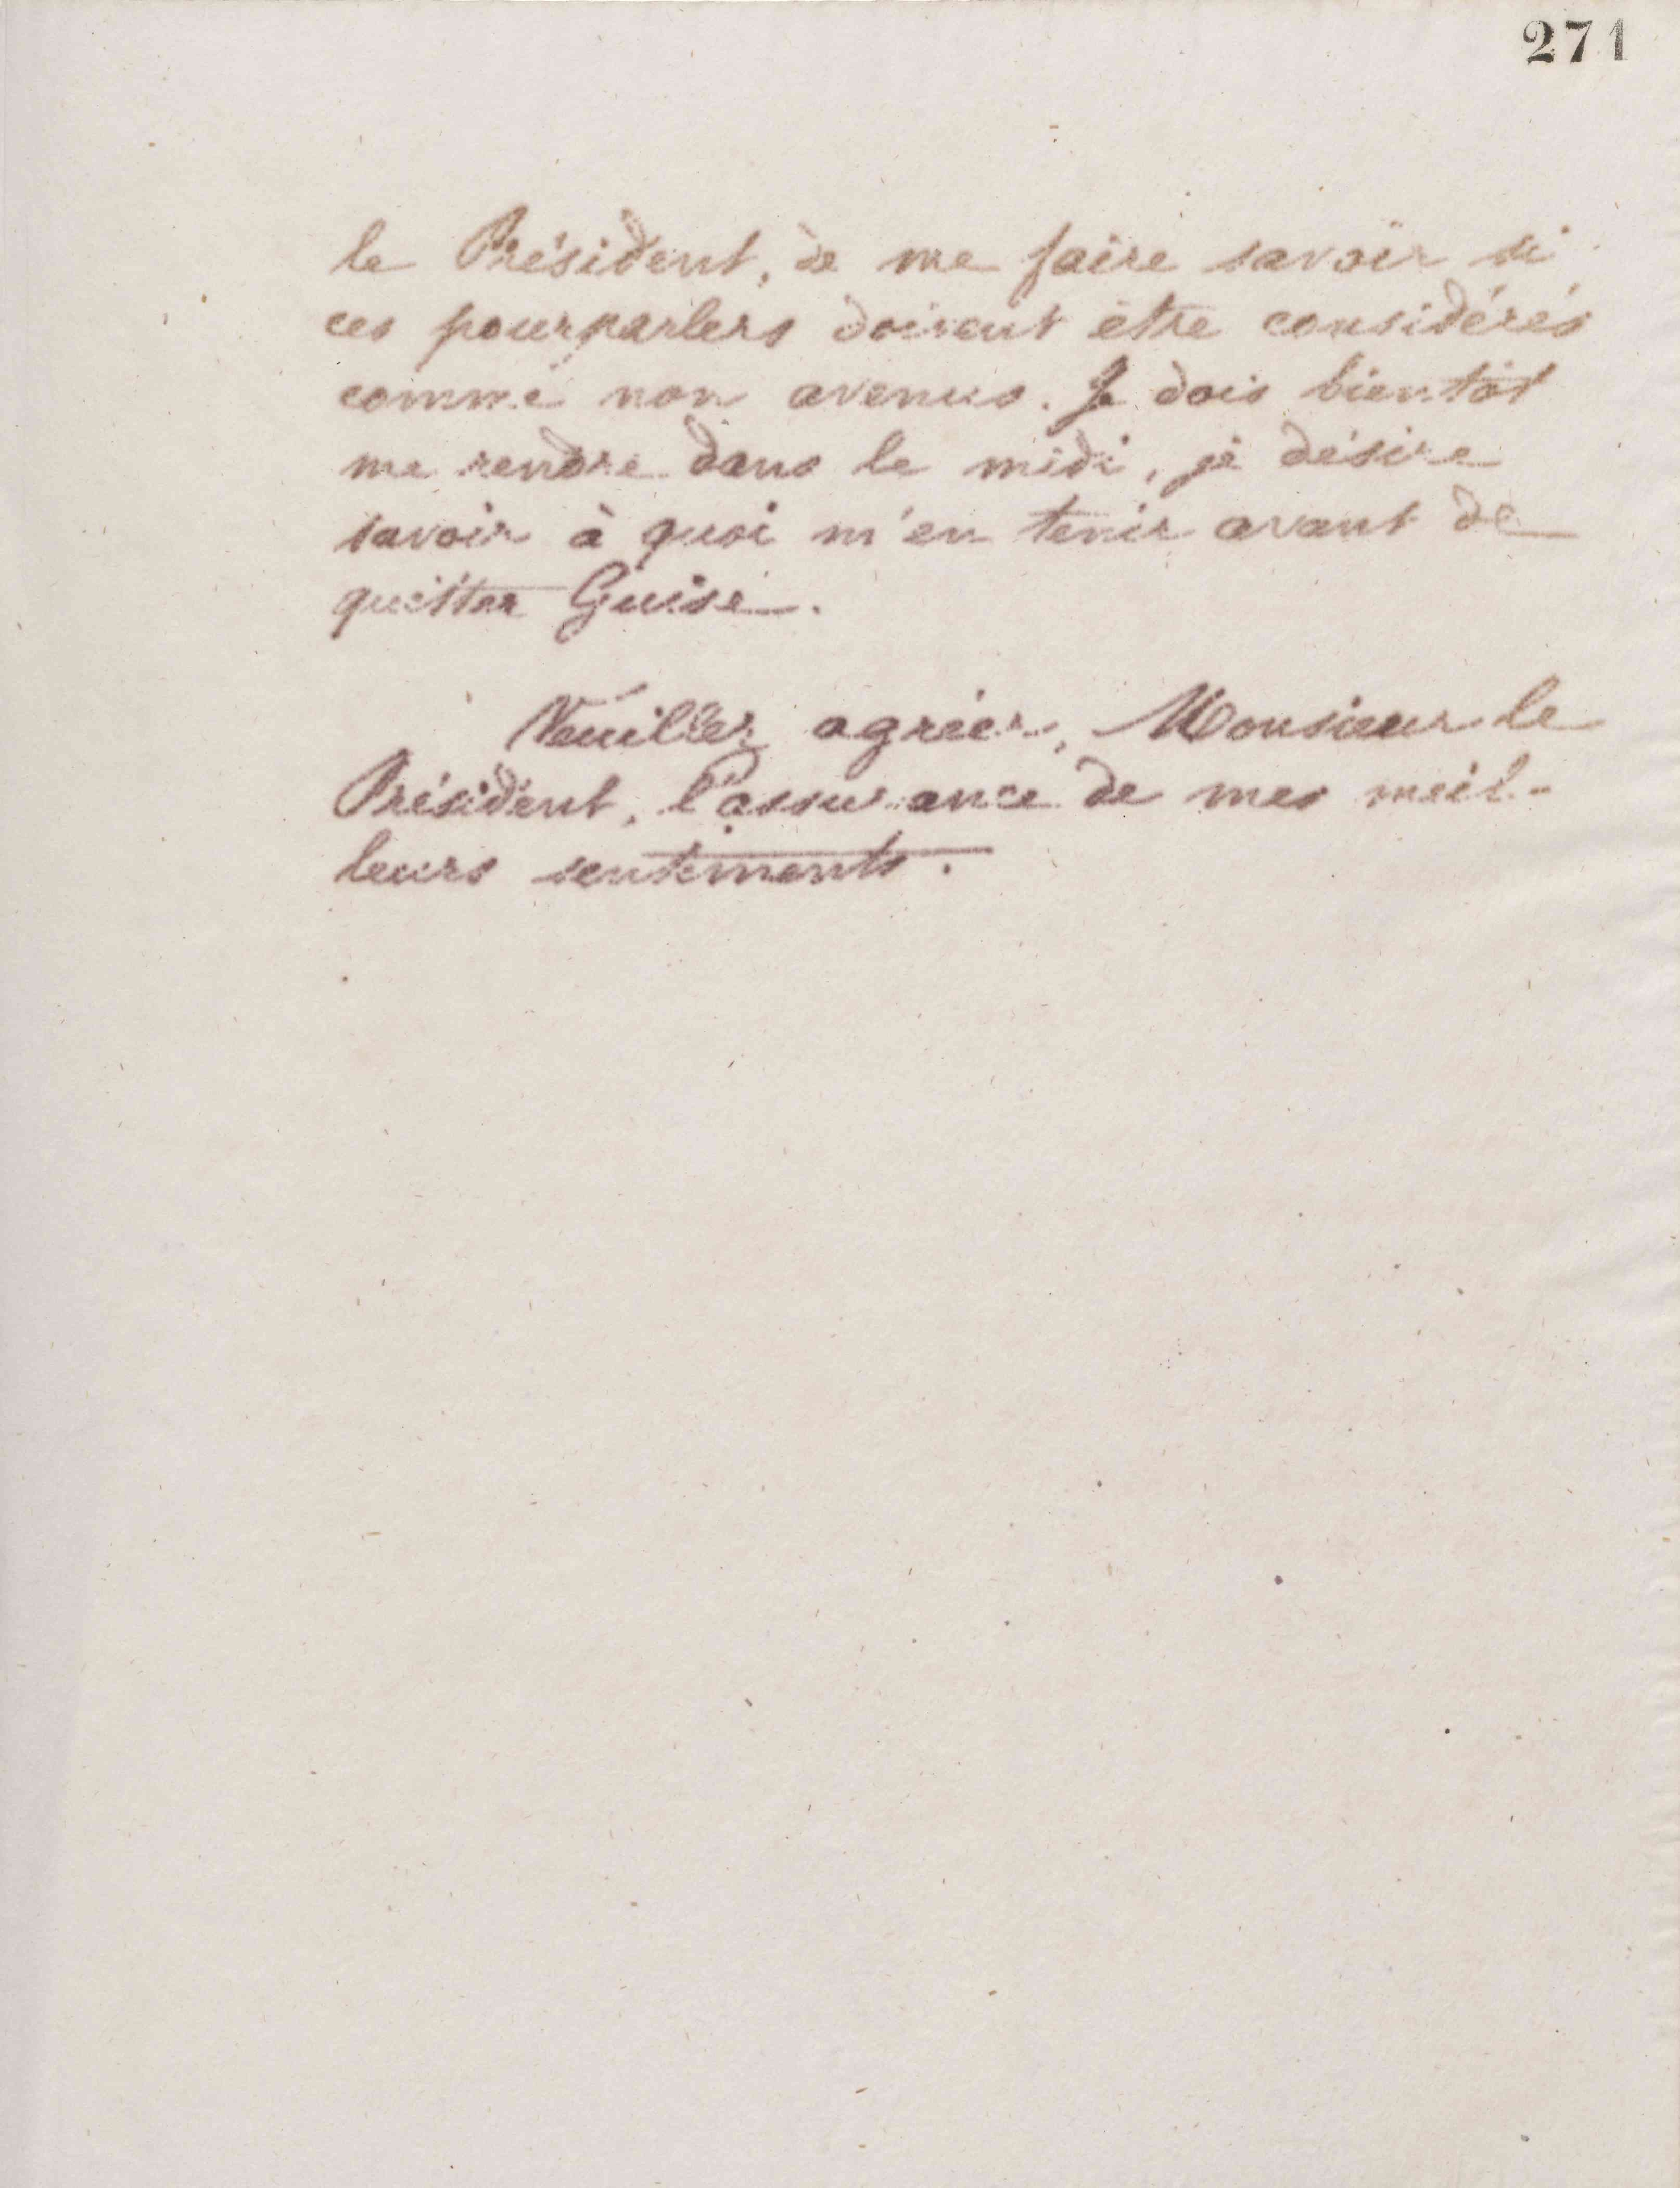 271
le Président, de me faire savoir si
ces pourparlers doivent être considérés
comme non avenus. Je dois bientôt
me rendre dans le midi, je désire
savoir à quoi m'en tenir avant de
quitter Guise.
Veuillez agréer, Monsieur le
Président, l'assurance de mes meil-
leurs sentiments.